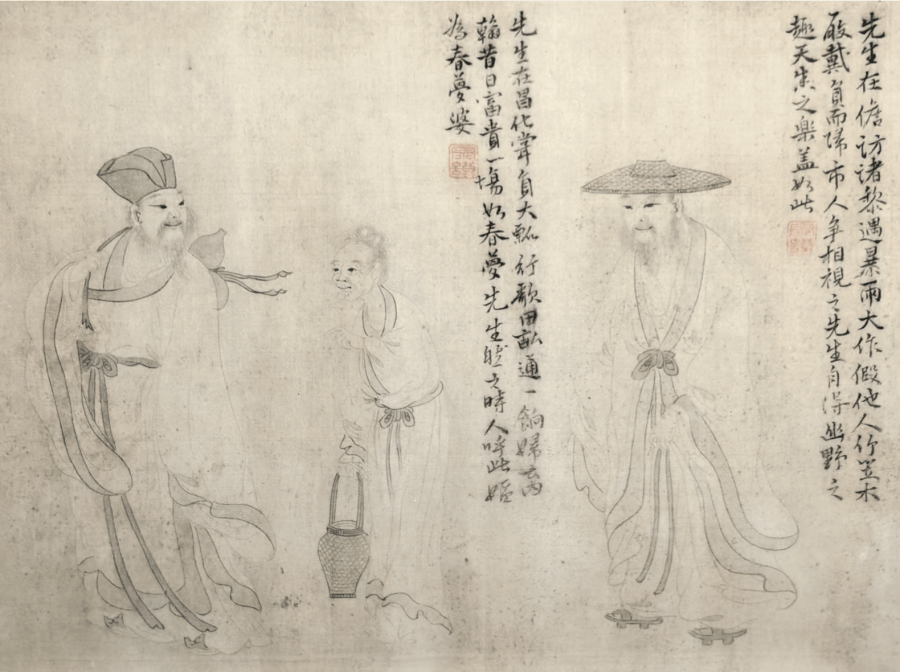 先生在儋訪諸黎遇暴雨大作假他人竹笠木
屐戴負而歸市人争相視之先生自得幽野之
趣天真之樂蓋如此
先生在昌化嘗負大瓢行歌田畝遇一餉婦云内
翰昔日富貴一場如春夢先生然之時人呼此嫗
為春夢婆